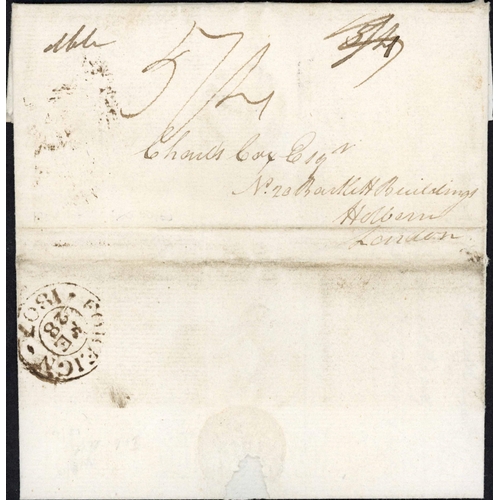 dble
5/4
3/4
Charles Cox Esqr
No. 20 Bartlett Buildings
Holborn
London
FOREIGN · 1807 ·
FE
28